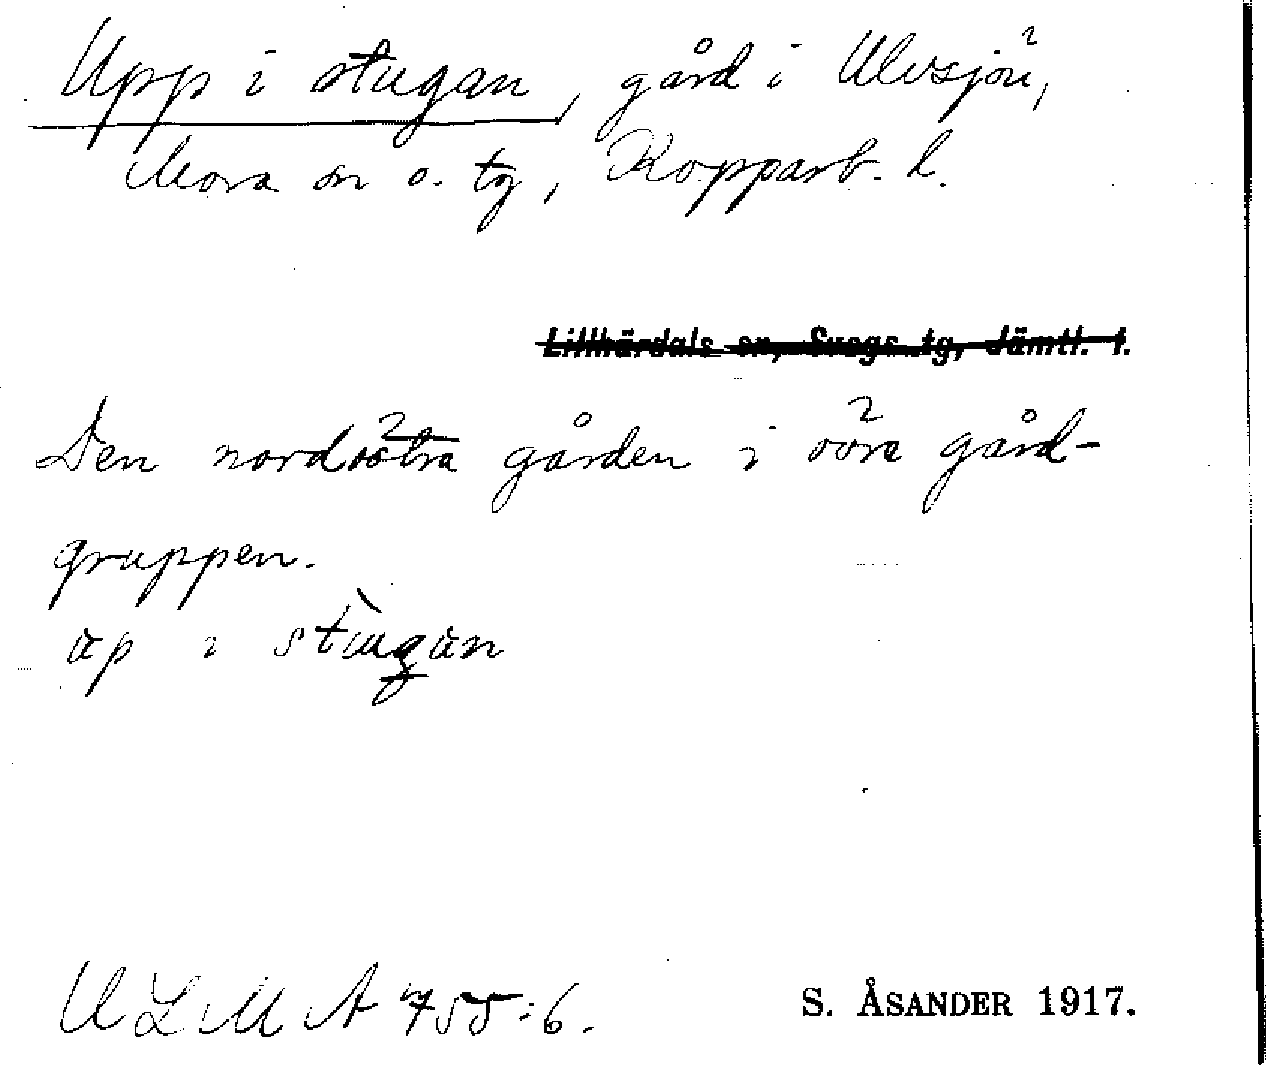 Upp i stugan, gård i Ulvsjön,
Mora sn o. tg, Kopparb. l.
Lillhärdals sn, Svegs tg, Jämtl. l.
Den nordöstra gården i övre gård-
gruppen.
up i stugan
ULMA 755:6.
S. ÅSANDER 1917.